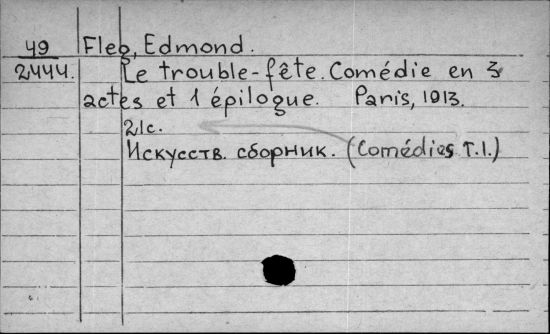 49 Fleg, Edmond.
2444. Le trouble-fête. Comédie en 3
actes et 1 épilogue. Paris, 1913.
21c.
Искусств. сборник. (Comédies T.I.)